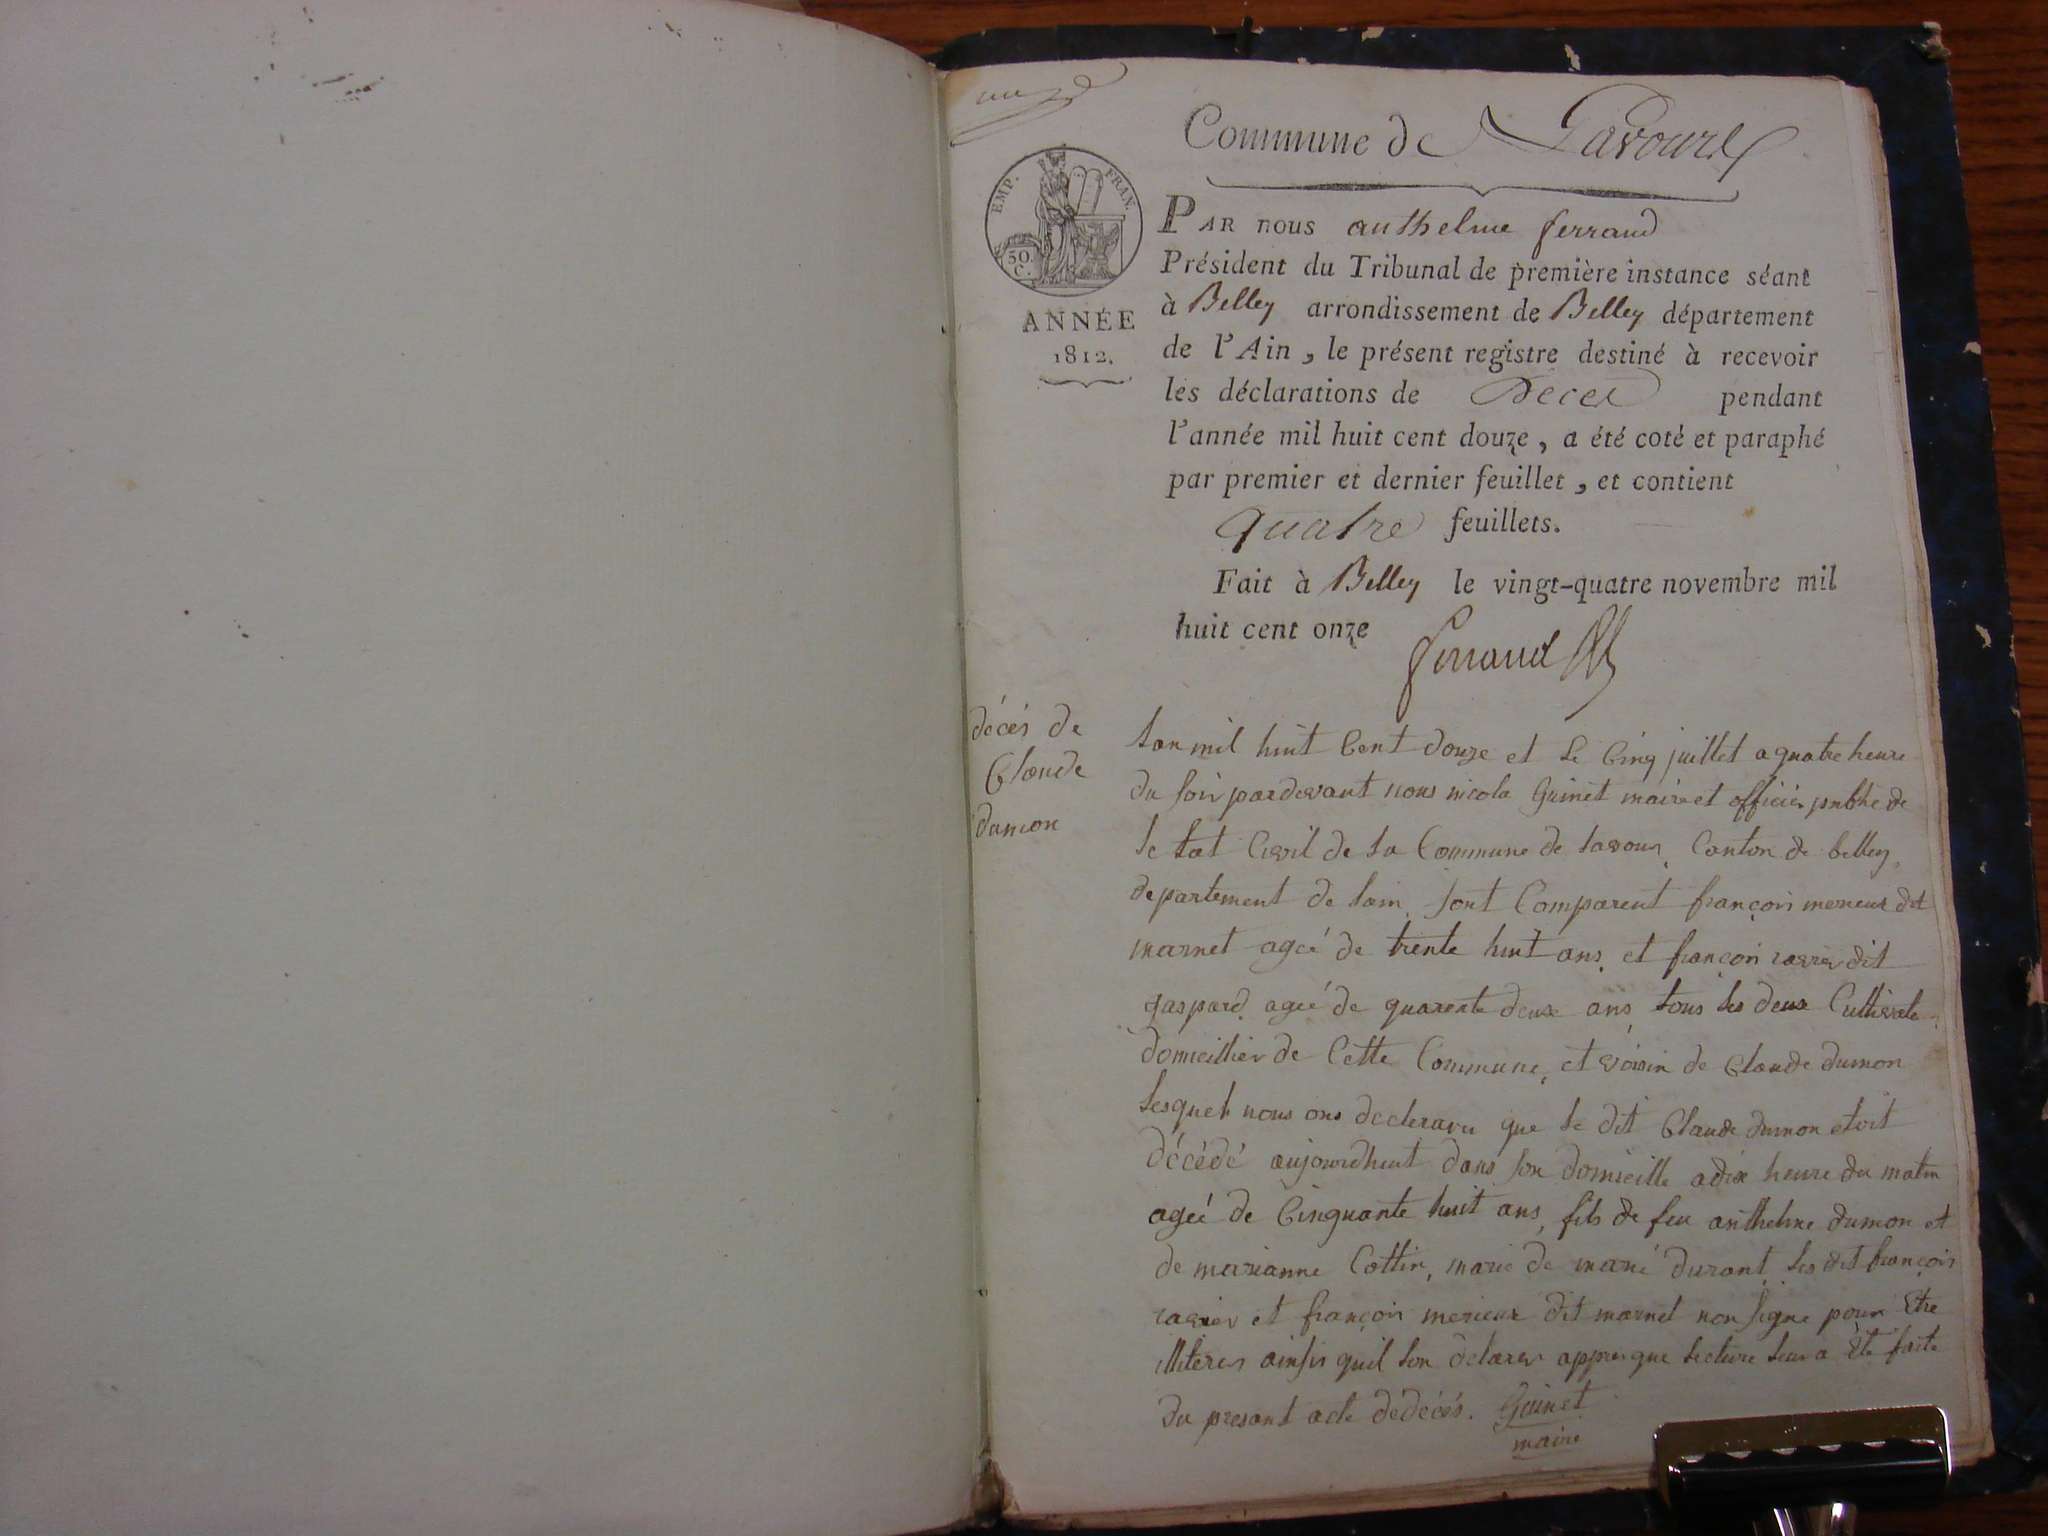 Commune de Lavours
EMP. FRAN.
50.
C.
ANNÉE
1812.
PAR nous anthelme ferrand
Président du Tribunal de première instance séant
à Belley arrondissement de Belley département
de l'Ain, le présent registre destiné à recevoir
les déclarations de Décès pendant
l'année mil huit cent douze, a été coté et paraphé
par premier et dernier feuillet, et contient
quatre feuillets.
Fait à Belley le vingt-quatre novembre mil
huit cent onze
ferrand
décés de
Claude
dumon
Lan mil huit Cent douze et le Cinq juillet a quatre heure
du soir pardevant nous nicola Guinet maire et officier publie de
le tat Civil de la Commune de lavour, Canton de belley,
departement de lain, sont Comparent françois merieux dit
marnet ageé de trente huit ans, et françoi ravier dit
gaspard, ageé de quarente deux ans, tous les deux Cultivate
domicillier de Cette Commune, et voisin de Claude dumon
lesquels nous ons declararu que le dit Claude dumon etoit
décédé aujourdhuit dans son domicille a dix heure du matin
ageé de Cinquante huit ans, fils de feu anthelme dumon et
de marianne Cottin, marie de marie durant, les dit françois
ravier et françois merieux dit marnet non signe pour Etre
illiterer ainsi quil lon delarer appres que lecture leur a Ete faite
du presant acte dédécés. Guinet
maire